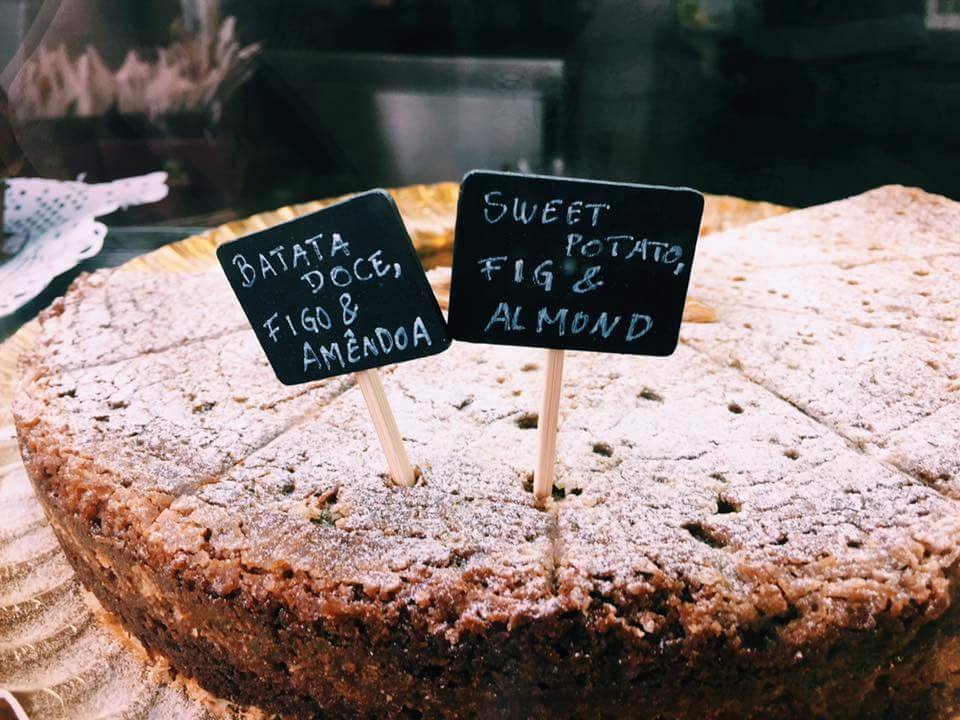 BATATA
DOCE,
FIGO &
AMÊNDOA
SWEET
POTATO,
FIG &
ALMOND